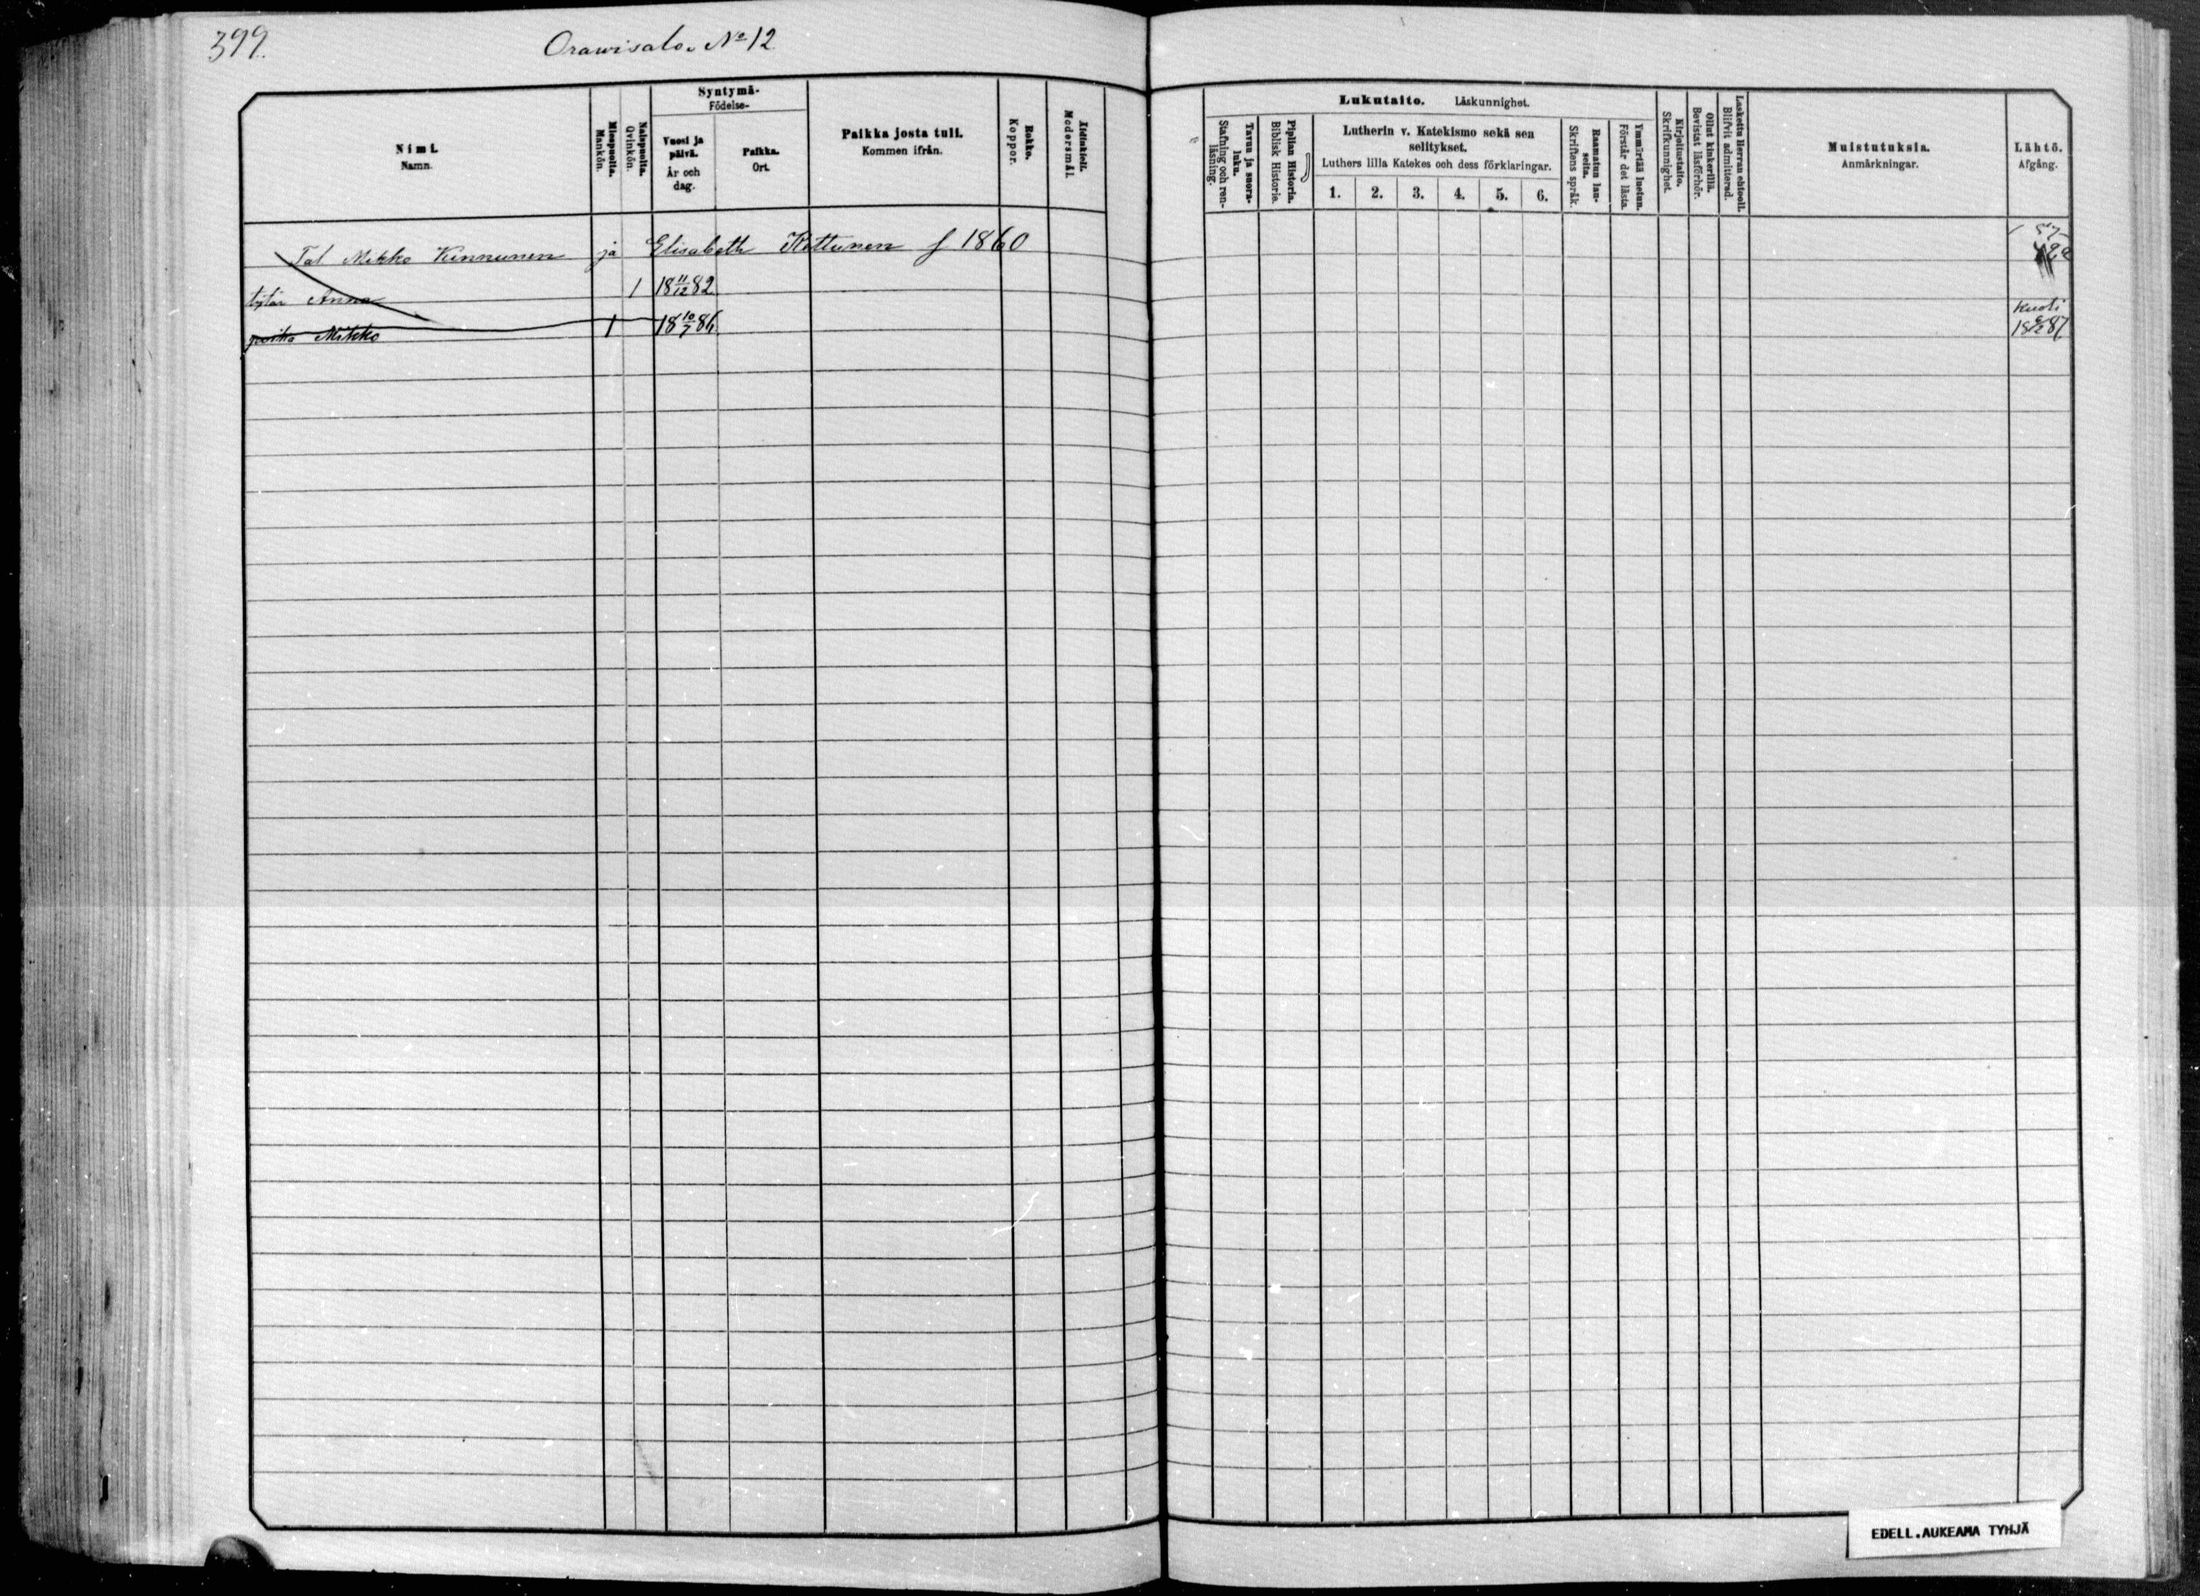 399.
Orawisalo. No 12
Nimi.
Namn.
Miespuolia.
Mankön.
Naispuolia.
Qvinkön.
Syntymä-
Födelse-
Vuosi ja
päivä.
År och
dag.
Paikka.
Ort.
Paikka josta tuli.
Kommen ifrån.
Rokko.
Koppor.
Äidinkieli.
Modersmål.
Lukutaito. Läskunnighet.
Tavuu ja suora-
luku.
Stafning och ren-
läsning.
Piplian Historia.
Biblisk Historie.
Lutherin v. Katekismo sekä sen
selitykset.
Luthers lilla Katekes och dess förklaringar.
1. 2. 3. 4. 5. 6.
Raamatun lau-
seita.
Skriftens språk.
Ymmärtää luetun.
Förstår det lästa.
Kirjoitustaito.
Skrifkunnighet.
Ollut kinkerillä.
Bevistat läsförhör.
Laskettu Herran ehtooll.
Blifvit admitterad.
Muistutuksia.
Anmärkningar.
Lähtö.
Afgång.
Tal Mikko Kinnunen ja Elisabeth Kettunen f 1860
tytär Anna 1 18 11/12 82
poika Mikko 1 18 10/7 86
Kuoli
EDELL.AUKEAMA TYHJÄ